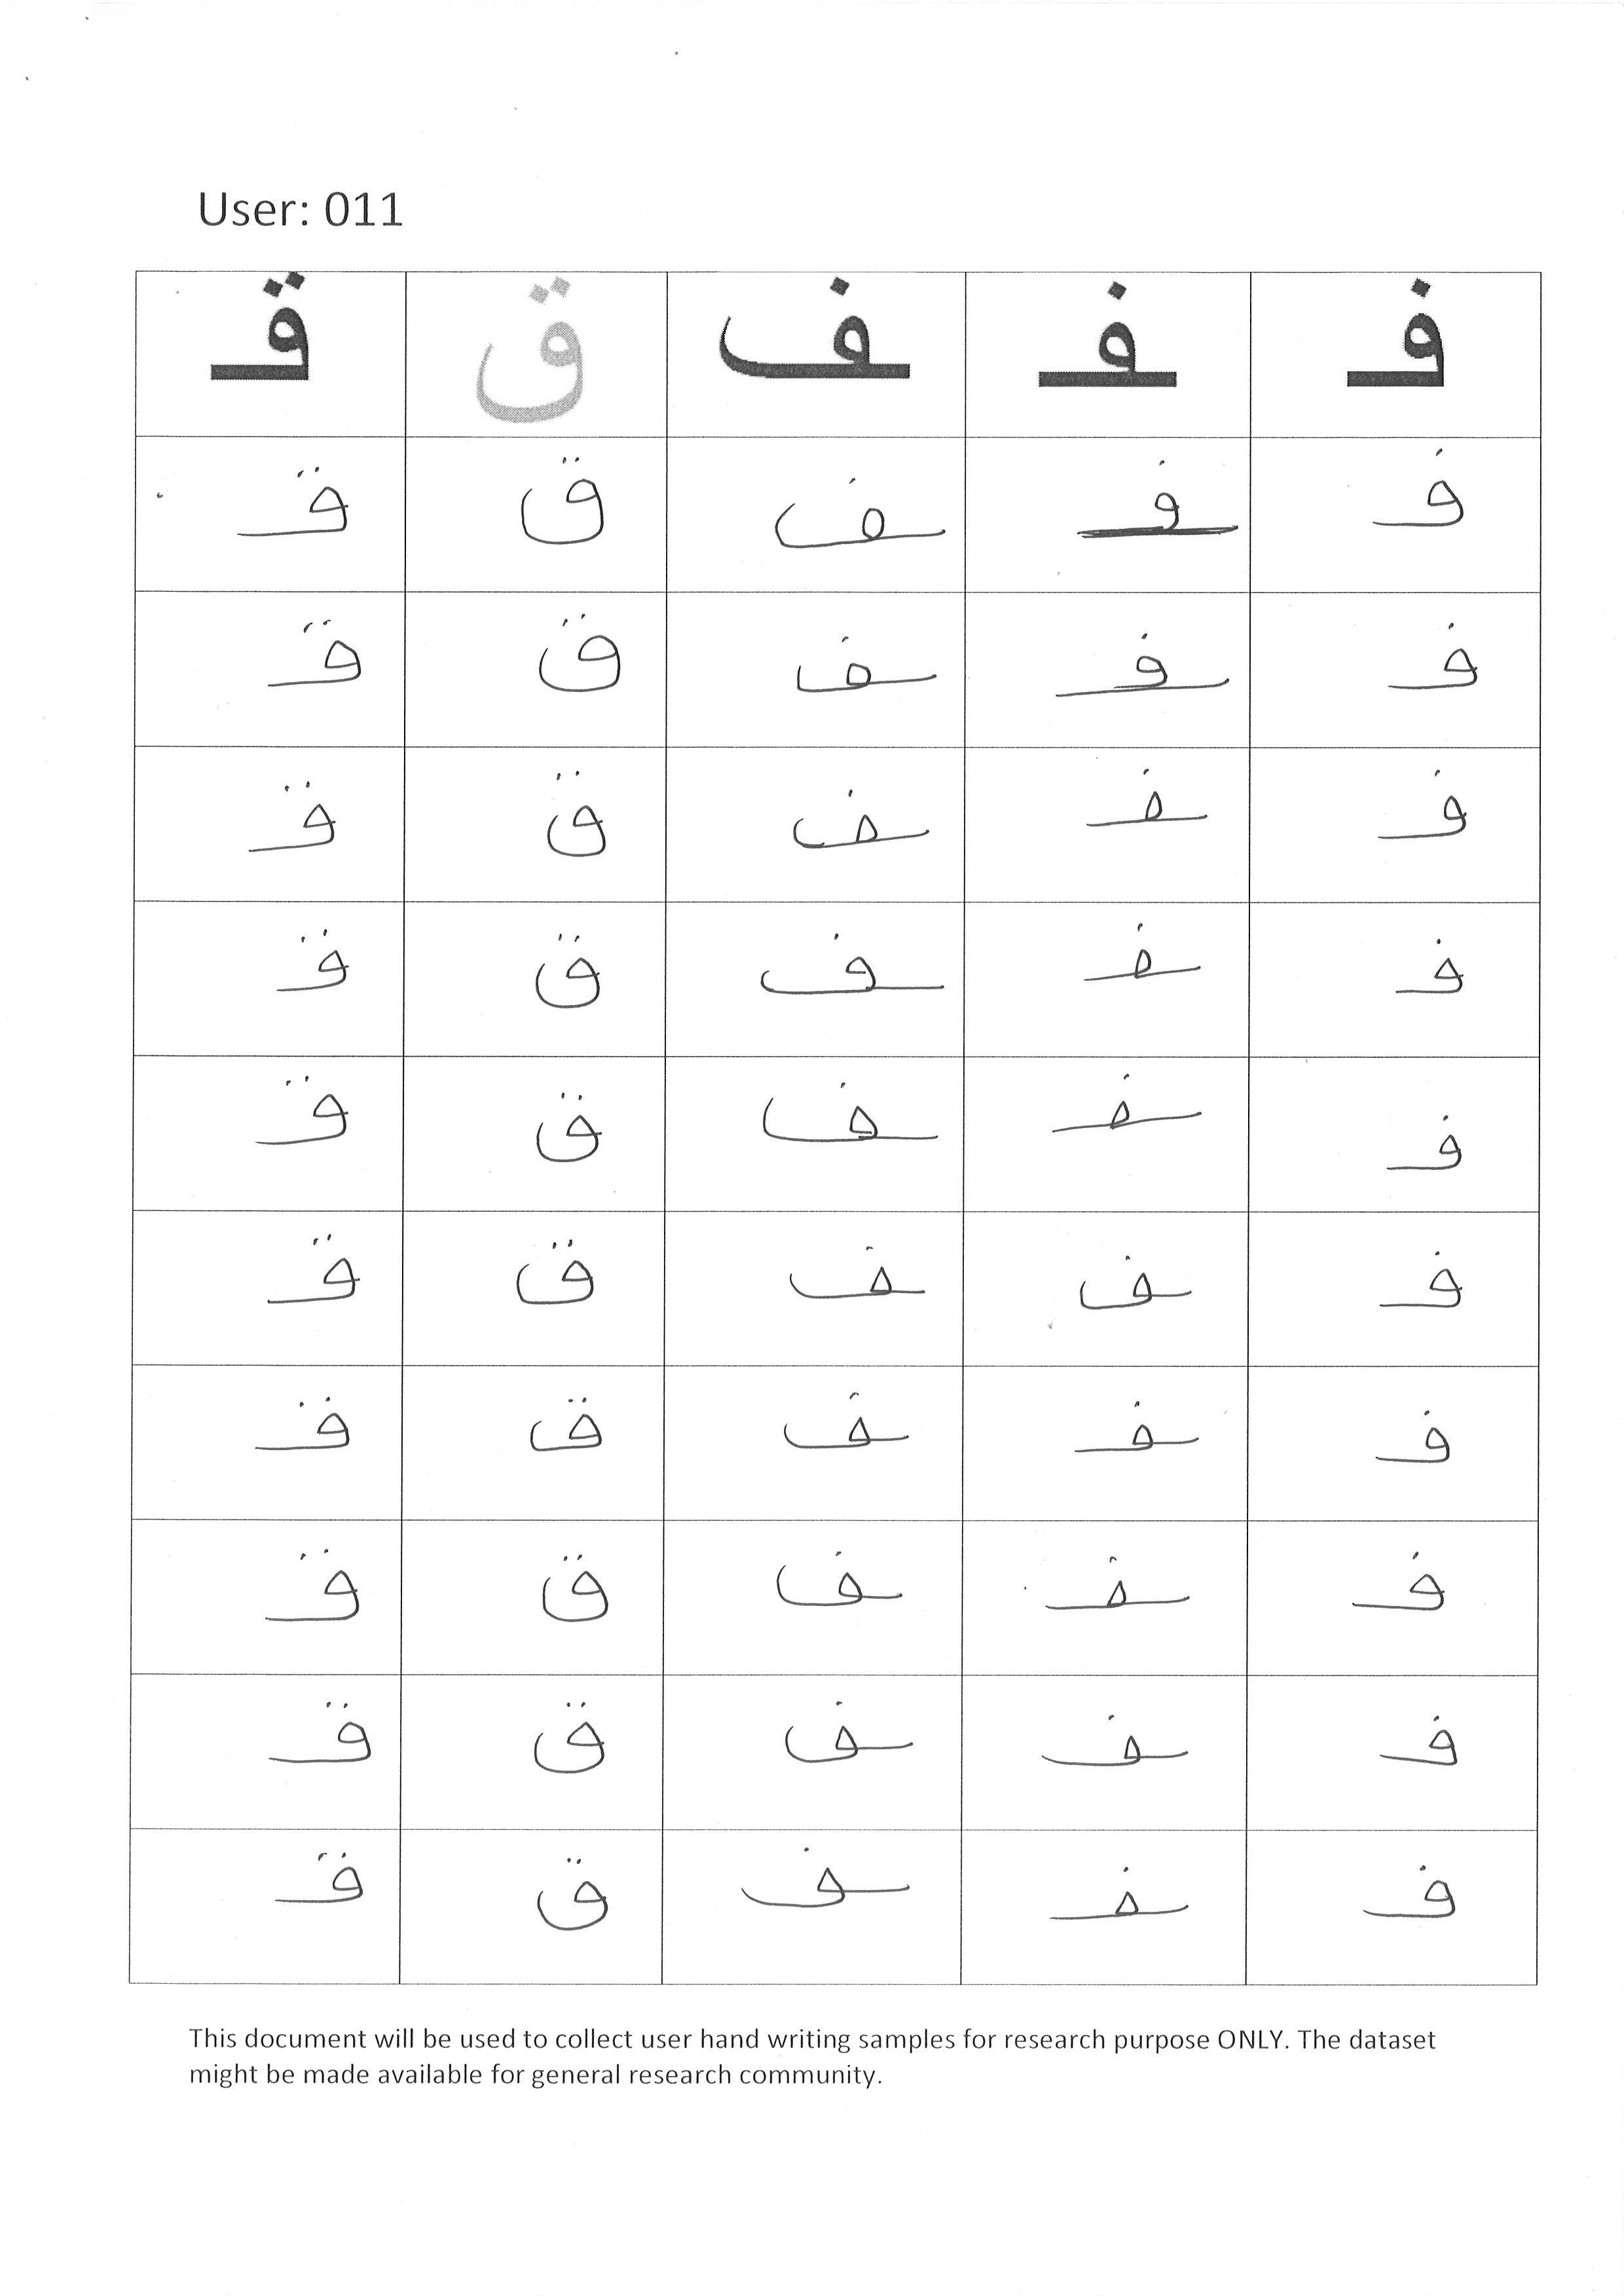 User: 011
فـ ـفـ ـف ق قـ
فـ ـفـ ـف ق قـ
فـ ـفـ ـف ق قـ
فـ ـفـ ـف ق قـ
فـ ـفـ ـف ق قـ
فـ ـفـ ـف ق قـ
فـ ـف ـف ق قـ
فـ ـفـ ـف ق قـ
فـ ـفـ ـف ق قـ
فـ ـفـ ـف ق قـ
فـ ـفـ ـف ق قـ
This document will be used to collect user hand writing samples for research purpose ONLY. The dataset
might be made available for general research community.